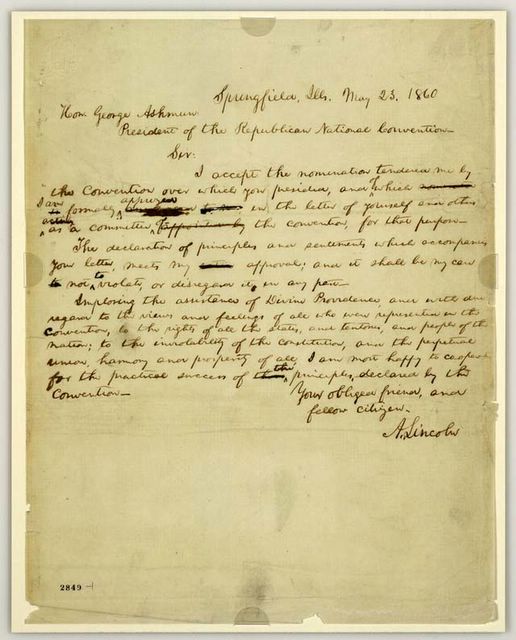 Springfield, Ills. May 23, 1860
Hon. George Ashmun
President of the Republican National Convention—
Sir:
I accept the nomination tendered me by
the Convention over which you presided, and of which
I am formally apprized in the letter of yourself and others
acting as a committee of the convention, for that purpose—
The declaration of principles and sentiments which accompanies
your letter, meets my approval; and it shall be my care
not to violate, or disregard it, in any part—
Imploring the assistance of Divine Providence and with due
regard to the views and feelings of all who were represented in the
convention, to the rights of all the states, and territories, and people of the
nation; to the inviolability of the constitution, and the perpetual
union, harmony and prosperity of all, I am most happy to co-operate
for the practical success of the principles, declared by the
Convention—
Your obliged friend, and
fellow citizen—
A. Lincoln
2849